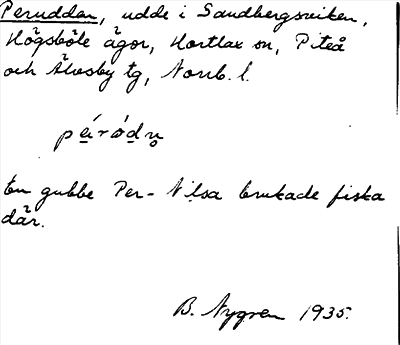 Peruddan, udde i Sandbergsviken,
Högsböle ägor, Hortlax sn, Piteå
och Älvsby tg, Norrb. l.
En gubbe Per-Nilsa brukade fiska
där.
B. Nygren 1935.